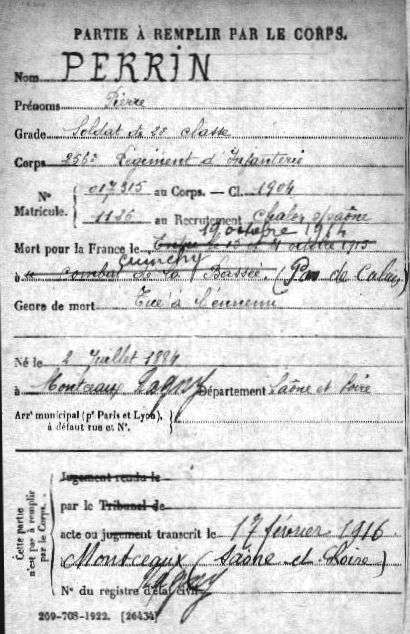 PARTIE À REMPLIR PAR LE CORPS.
Nom PERRIN
Prénoms Pierre
Grade Soldat de 2e classe
Corps 256e Régiment d'Infanterie
N° 017315 au Corps. — Cl. 1904
Matricule. 1136 au Recrutement Chalon s/Saône
19 octobre 1914
Mort pour la France le
Cuinchy
à combat de la Bassée. (Pas de Calais)
Genre de mort Tué à l'ennemi
Né le 2 Juillet 1884
à Montceaux Ragny Département Saône et Loire
Arrt municipal (pr Paris et Lyon),
à défaut rue et N°.
Cette partie
n'est pas à remplir
par le Corps.
Jugement rendu le
par le Tribunal de
acte ou jugement transcrit le 17 février 1916
Montceaux (Saône et Loire)
Ragny
N° du registre d'état civil
269-708-1922. [26434]